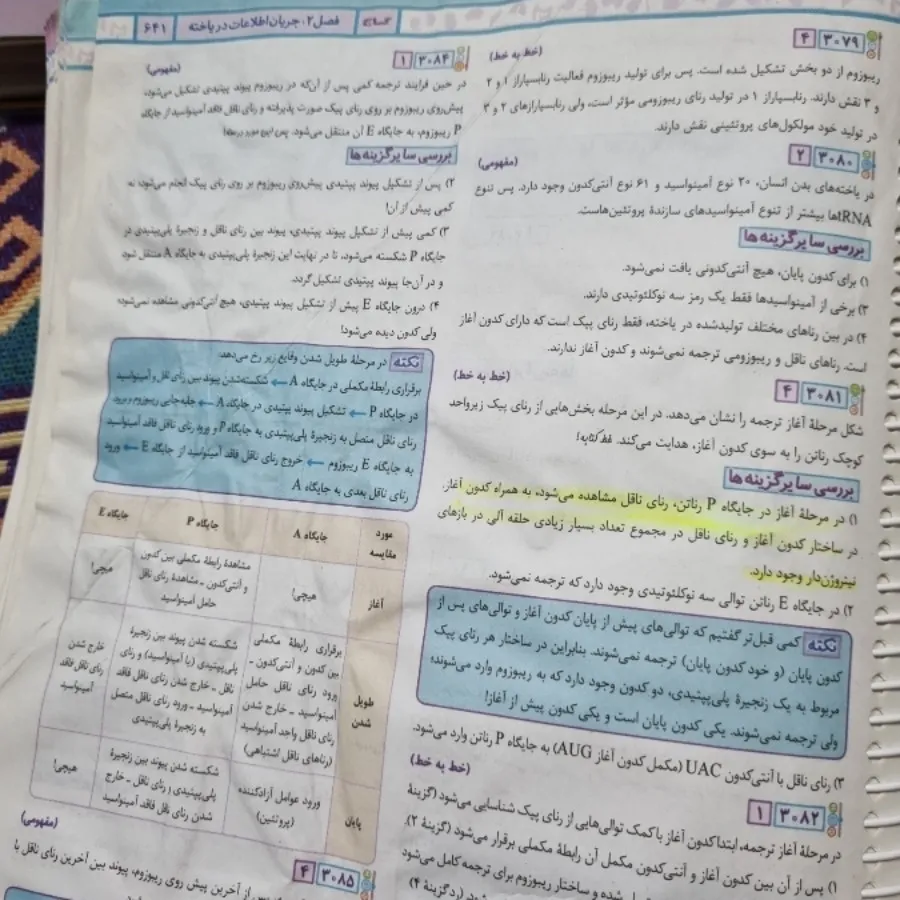 فصل ۲: جریان اطلاعات در یاخته
۶۴۱
۳۰۷۹
۴
(خط به خط)
ریبوزوم از دو بخش تشکیل شده است. پس برای تولید ریبوزوم فعالیت رنابسپاراز ۱ و ۲
و ۳ نقش دارند. رنابسپاراز ۱ در تولید رنای ریبوزومی مؤثر است، ولی رنابسپارازهای ۲ و ۳
در تولید خود مولکول‌های پروتئینی نقش دارند.
۳۰۸۰
۲
(مفهومی)
در یاخته‌های بدن انسان، ۲۰ نوع آمینواسید و ۶۱ نوع آنتی‌کدون وجود دارد. پس تنوع
tRNAها بیشتر از تنوع آمینواسیدهای سازندهٔ پروتئین‌هاست.
بررسی سایر گزینه ها
۱) برای کدون پایان، هیچ آنتی‌کدونی یافت نمی‌شود.
۳) برخی از آمینواسیدها فقط یک رمز سه نوکلئوتیدی دارند.
۴) در بین رناهای مختلف تولیدشده در یاخته، فقط رنای پیک است که دارای کدون آغاز
است. رناهای ناقل و ریبوزومی ترجمه نمی‌شوند و کدون آغاز ندارند.
۳۰۸۱
۴
(خط به خط)
شکل مرحلهٔ آغاز ترجمه را نشان می‌دهد. در این مرحله بخش‌هایی از رنای پیک زیرواحد
کوچک رناتن را به سوی کدون آغاز، هدایت می‌کند. خط کتابه!
بررسی سایر گزینه ها
۱) در مرحلهٔ آغاز در جایگاه P رناتن، رنای ناقل مشاهده می‌شود، به همراه کدون آغاز.
در ساختار کدون آغاز و رنای ناقل در مجموع تعداد بسیار زیادی حلقه آلی در بازهای
نیتروژن‌دار وجود دارد.
۲) در جایگاه E رناتن توالی سه نوکلئوتیدی وجود دارد که ترجمه نمی‌شود.
نکته کمی قبل‌تر گفتیم که توالی‌های پیش از پایان کدون آغاز و توالی‌های پس از
کدون پایان (و خود کدون پایان) ترجمه نمی‌شوند. بنابراین در ساختار هر رنای پیک
مربوط به یک زنجیرهٔ پلی‌پپتیدی، دو کدون وجود دارد که به ریبوزوم وارد می‌شوند؛
ولی ترجمه نمی‌شوند. یکی کدون پایان است و یکی کدون پیش از آغاز!
۳) رنای ناقل با آنتی‌کدون UAC (مکمل کدون آغاز AUG) به جایگاه P رناتن وارد می‌شود.
۳۰۸۲
۱
(خط به خط)
در مرحلهٔ آغاز ترجمه، ابتدا کدون آغاز با کمک توالی‌هایی از رنای پیک شناسایی می‌شود (گزینهٔ
۱) پس از آن بین کدون آغاز و آنتی‌کدون مکمل آن رابطهٔ مکملی برقرار می‌شود (گزینهٔ ۲).
شده و ساختار ریبوزوم برای ترجمه کامل می‌شود
(رد گزینهٔ ۴)
۳۰۸۴
۱
(مفهومی)
در حین فرایند ترجمه کمی پس از آن‌که در ریبوزوم پیوند پپتیدی تشکیل می‌شود،
پیش‌روی ریبوزوم بر روی رنای پیک صورت پذیرفته و رنای ناقل فاقد آمینواسید از جایگاه
P ریبوزوم، به جایگاه E آن منتقل می‌شود.
بررسی سایر گزینه ها
۲) پس از تشکیل پیوند پپتیدی پیش‌روی ریبوزوم بر روی رنای پیک انجام می‌شود؛ نه
کمی پیش از آن!
۳) کمی پیش از تشکیل پیوند پپتیدی، پیوند بین رنای ناقل و زنجیرهٔ پلی‌پپتیدی در
جایگاه P شکسته می‌شود، تا در نهایت این زنجیرهٔ پلی‌پپتیدی به جایگاه A منتقل شود
و در آن‌جا پیوند پپتیدی تشکیل گردد.
۴) درون جایگاه E پیش از تشکیل پیوند پپتیدی، هیچ آنتی‌کدونی مشاهده نمی‌شود؛
ولی کدون دیده می‌شود!
نکته در مرحلهٔ طویل شدن وقایع زیر رخ می‌دهد:
برقراری رابطهٔ مکملی در جایگاه A ← شکسته‌شدن پیوند بین رنای ناقل و آمینواسید
در جایگاه P ← تشکیل پیوند پپتیدی در جایگاه A ← جابه‌جایی ریبوزوم و ورود
رنای ناقل متصل به زنجیرهٔ پلی‌پپتیدی به جایگاه P و ورود رنای ناقل فاقد آمینواسید
به جایگاه E ریبوزوم ← خروج رنای ناقل فاقد آمینواسید از جایگاه E ← ورود
رنای ناقل بعدی به جایگاه A
مورد مقایسه
جایگاه A
جایگاه P
جایگاه E
آغاز
هیچی!
مشاهدهٔ رابطهٔ مکملی بین کدون
و آنتی‌کدون ـ مشاهدهٔ رنای ناقل
حامل آمینواسید
هیچی!
طویل شدن
برقراری رابطهٔ مکملی
بین کدون و آنتی‌کدون ـ
ورود رنای ناقل حامل
آمینواسید ـ خارج شدن
رنای ناقل واجد آمینواسید
(رناهای ناقل اشتباهی)
شکسته شدن پیوند بین زنجیرهٔ
پلی‌پپتیدی (یا آمینواسید) و رنای
ناقل ـ خارج شدن رنای ناقل فاقد
آمینواسید ـ ورود رنای ناقل متصل
به زنجیرهٔ پلی‌پپتیدی
خارج شدن
رنای ناقل فاقد
آمینواسید
پایان
ورود عوامل آزادکننده
(پروتئین)
شکسته شدن پیوند بین زنجیرهٔ
پلی‌پپتیدی و رنای ناقل ـ خارج
شدن رنای ناقل فاقد آمینواسید
هیچی!
۳۰۸۵
۴
(مفهومی)
از آخرین پیش روی ریبوزوم، پیوند بین آخرین رنای ناقل با